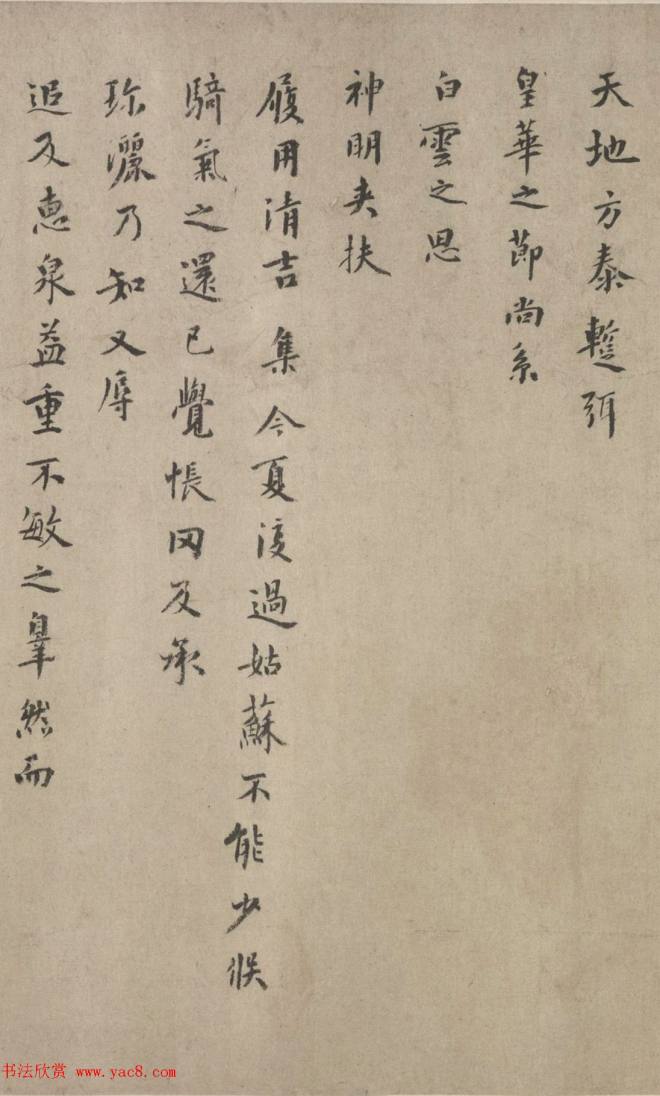 天地方泰蹔弭
皇華之節尚系
白雲之思
神明夾扶
履用清吉 集今夏浚過姑蘇不能少俟
騎氣之還已覺悵罔及承
珎灑乃知又辱
追及惠泉益重不敏之辠然而
书法欣赏 www.yac8.com